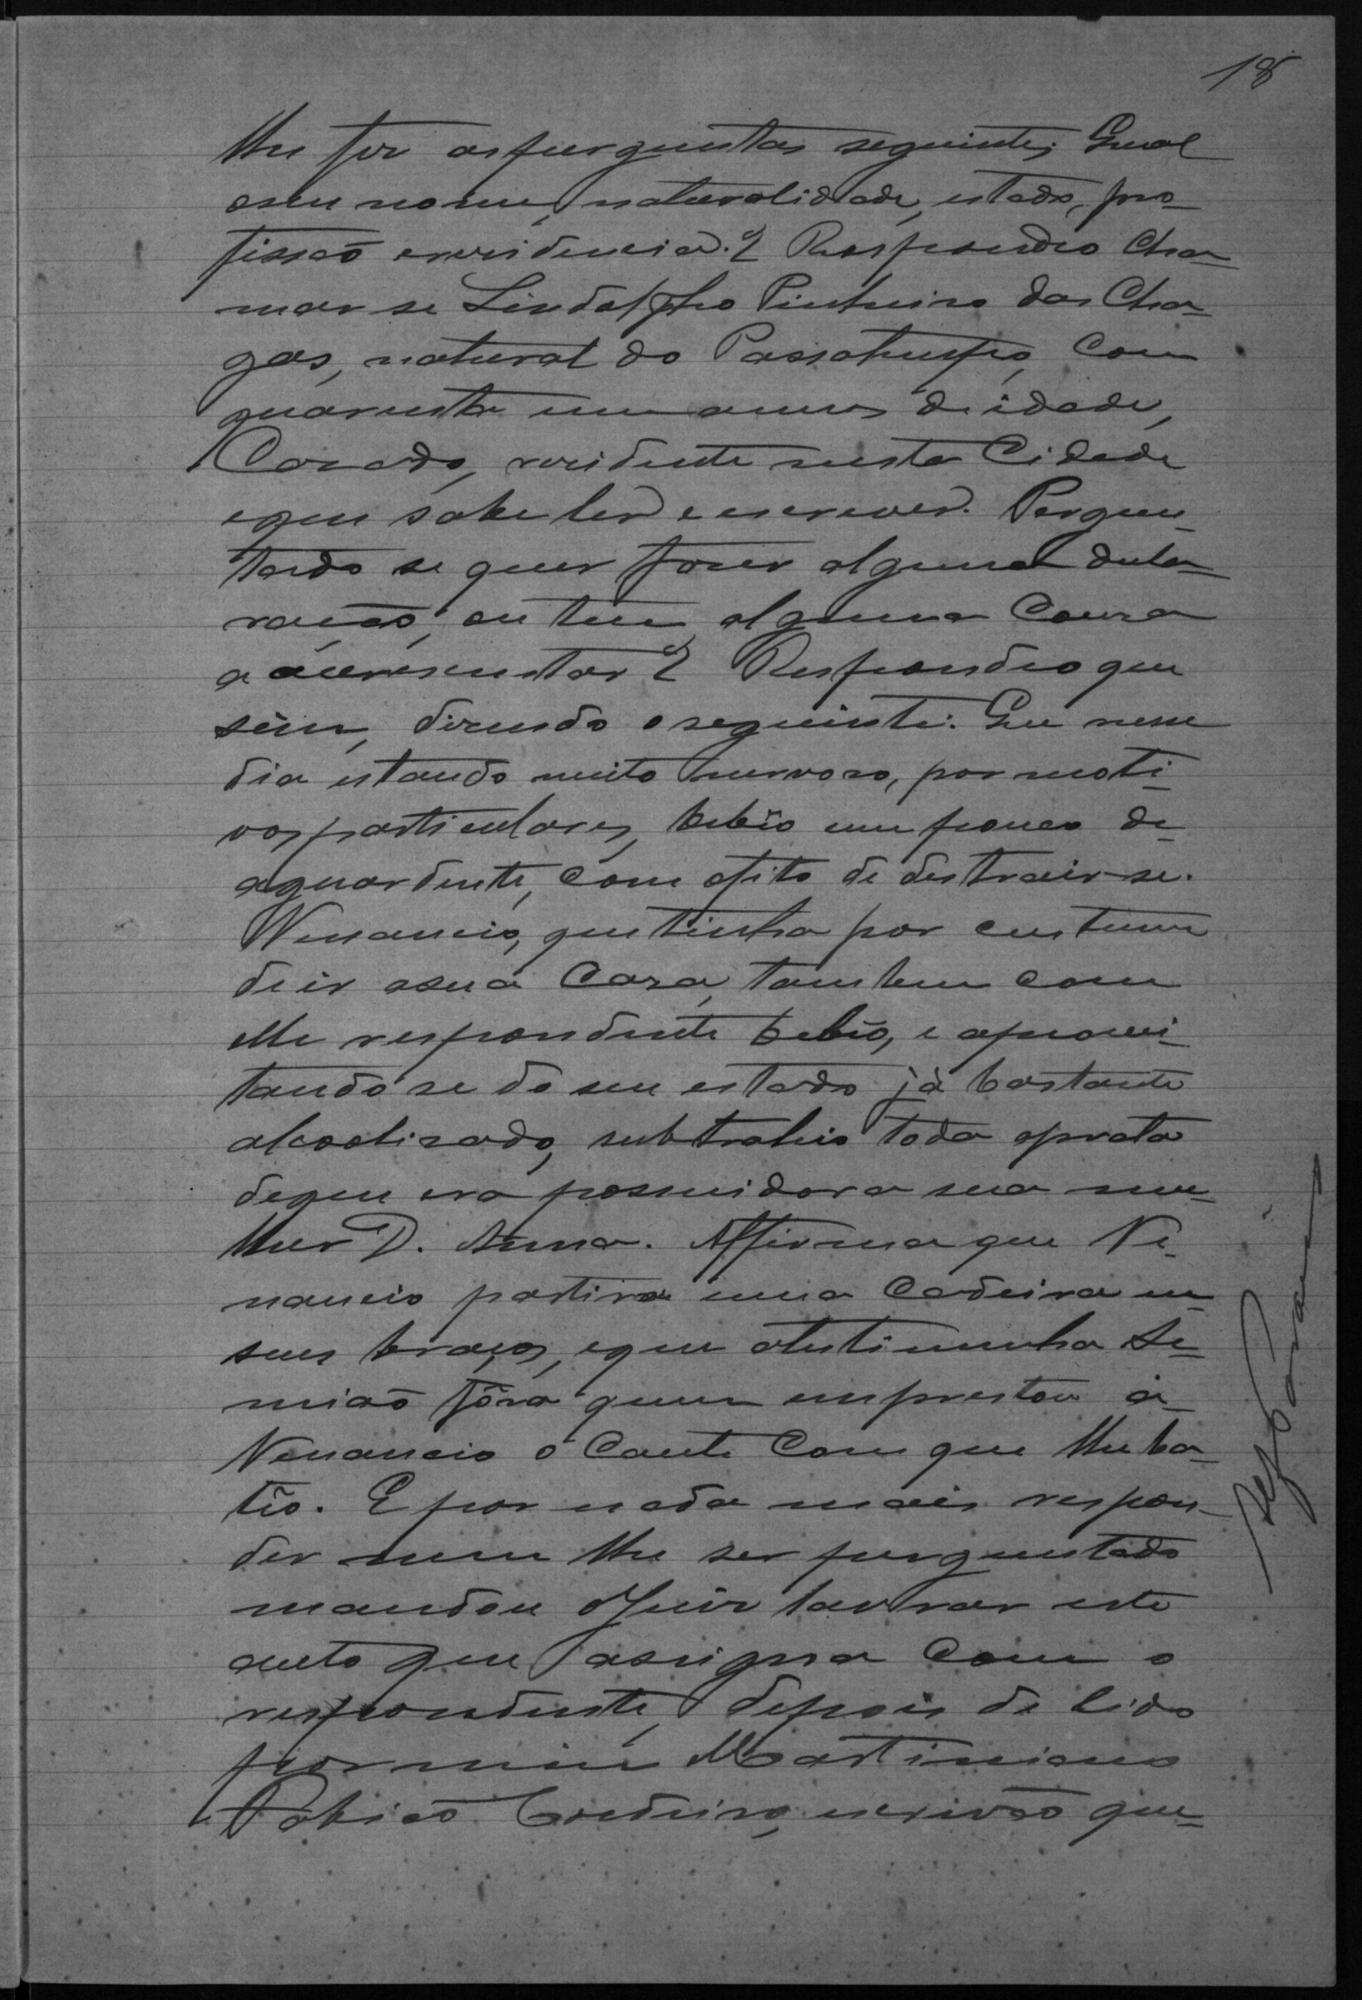 18
lhe fez as perguntas seguintes: Qual
o seu nome, naturalidade, estado, pro-
fissaõ e residencia? Respondeo cha-
mar-se Lindolpho Pinheiro das Cha-
gas, natural do Passatempo, com
quarenta um annos de idade,
Casado, residente nesta Cidade
e que sabe ler e escrever. Pergun-
tado se quer fazer alguma decla-
ração, ou tem alguma couza
a accrescentar? Respondeo que
sim, dizendo o seguinte: Que nesse
dia estando muito nervozo, por moti-
vos particulares, bebêo um pouco de
aguardente, com o fito de destrair-se.
Venancio, que tinha por custume
de ir a sua Caza, tambem com
elle respondente bebêo, e aprovei-
tando se do seu estado já bastante
alcoolizado, subtrahio toda a prata
de que era possuidora sua mu-
lher D. Anna. Affirma que Ve-
nancio partira uma Cadeira em
seus braços, e que a testimunha Se-
miaõ fôra quem emprestou á
Venancio o Cacete com que lhe ba-
têo. E por nada mais respon-
der nem lhe ser perguntado
mandou o Juiz lavrar este
auto que assigna com o
respondente, depois de lido
por mim Martiniano
Cordeiro, escrivaõ que